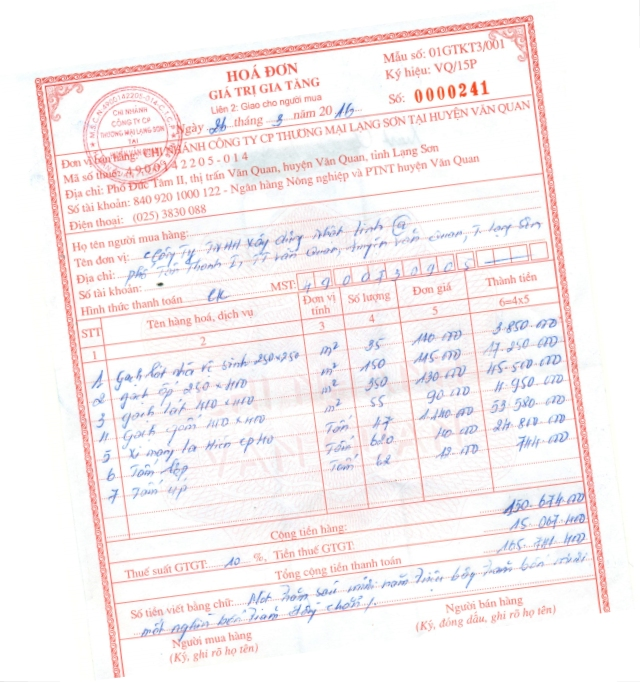 HOÁ ĐƠN
GIÁ TRỊ GIA TĂNG
Liên 2: Giao cho người mua
Mẫu số: 01GTKT3/001
Ký hiệu: VQ/15P
Số: 0000241
Ngày 26 tháng 3 năm 2016
M.S.C.N:4900142205-014-C.T.C.P
CHI NHÁNH
CÔNG TY CP
THƯƠNG MẠI LẠNG SƠN
TẠI
HUYỆN VĂN QUAN
Đơn vị bán hàng: CHI NHÁNH CÔNG TY CP THƯƠNG MẠI LẠNG SƠN TẠI HUYỆN VĂN QUAN
Mã số thuế: 4900142205-014
Địa chỉ: Phố Đức Tâm II, thị trấn Văn Quan, huyện Văn Quan, tỉnh Lạng Sơn
Số tài khoản: 840 920 1000 122 - Ngân hàng Nông nghiệp và PTNT huyện Văn Quan
Điện thoại: (025) 3830 088
Họ tên người mua hàng:
Tên đơn vị: Công Ty TNHH Xây dựng
Địa chỉ: phố Tân Thanh I, TT Văn Quan, huyện Văn Quan, T. Lạng Sơn
Số tài khoản:
Hình thức thanh toán CK MST: 4900130905
STT Tên hàng hoá, dịch vụ Đơn vị tính Số lượng Đơn giá Thành tiền
1 2 3 4 5 6=4x5
1 Gạch lát nhà vệ sinh 250×250 m² 35 110.000 3.850.000
2 gạch ốp 250×400 m² 150 115.000 17.250.000
3 gạch lát 400×400 m² 350 130.000 45.500.000
4 Gạch 400×400 m² 55 90.000 4.950.000
5 Xi măng 47 1.140.000 53.580.000
6 Tấm lợp Tấm 620 40.000 24.800.000
7 Tấm úp Tấm 62 12.000 744.000
Cộng tiền hàng: 150.674.000
Thuế suất GTGT: 10 %, Tiền thuế GTGT: 15.067.400
Tổng cộng tiền thanh toán 165.741.400
Số tiền viết bằng chữ: Một trăm sáu mươi năm triệu bảy trăm bốn mươi
một nghìn bốn trăm đồng chẵn
Người mua hàng Người bán hàng
(Ký, ghi rõ họ tên) (Ký, đóng dấu, ghi rõ họ tên)